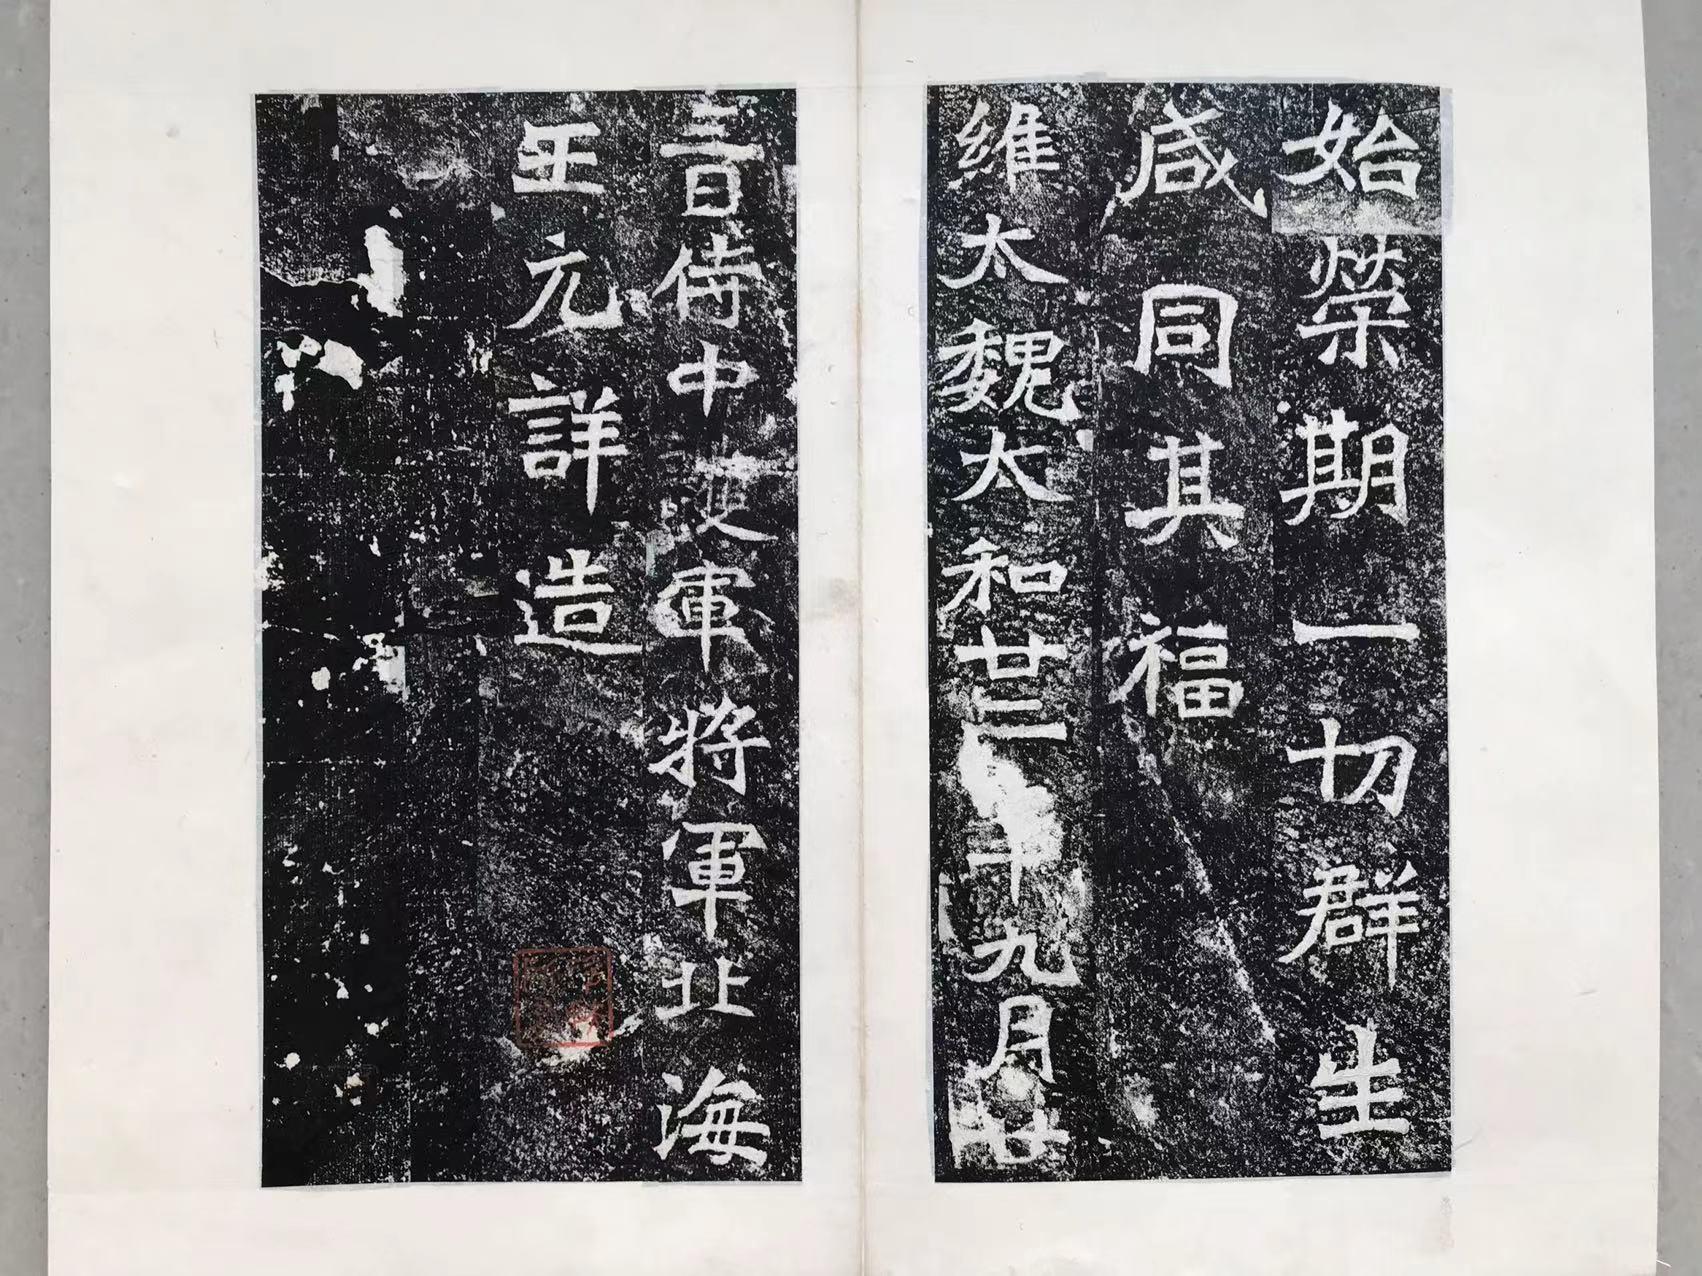 始榮期一切群生
咸同其福
維太魏太和廿二年九月廿
三日侍中護軍將軍北海
王元詳造